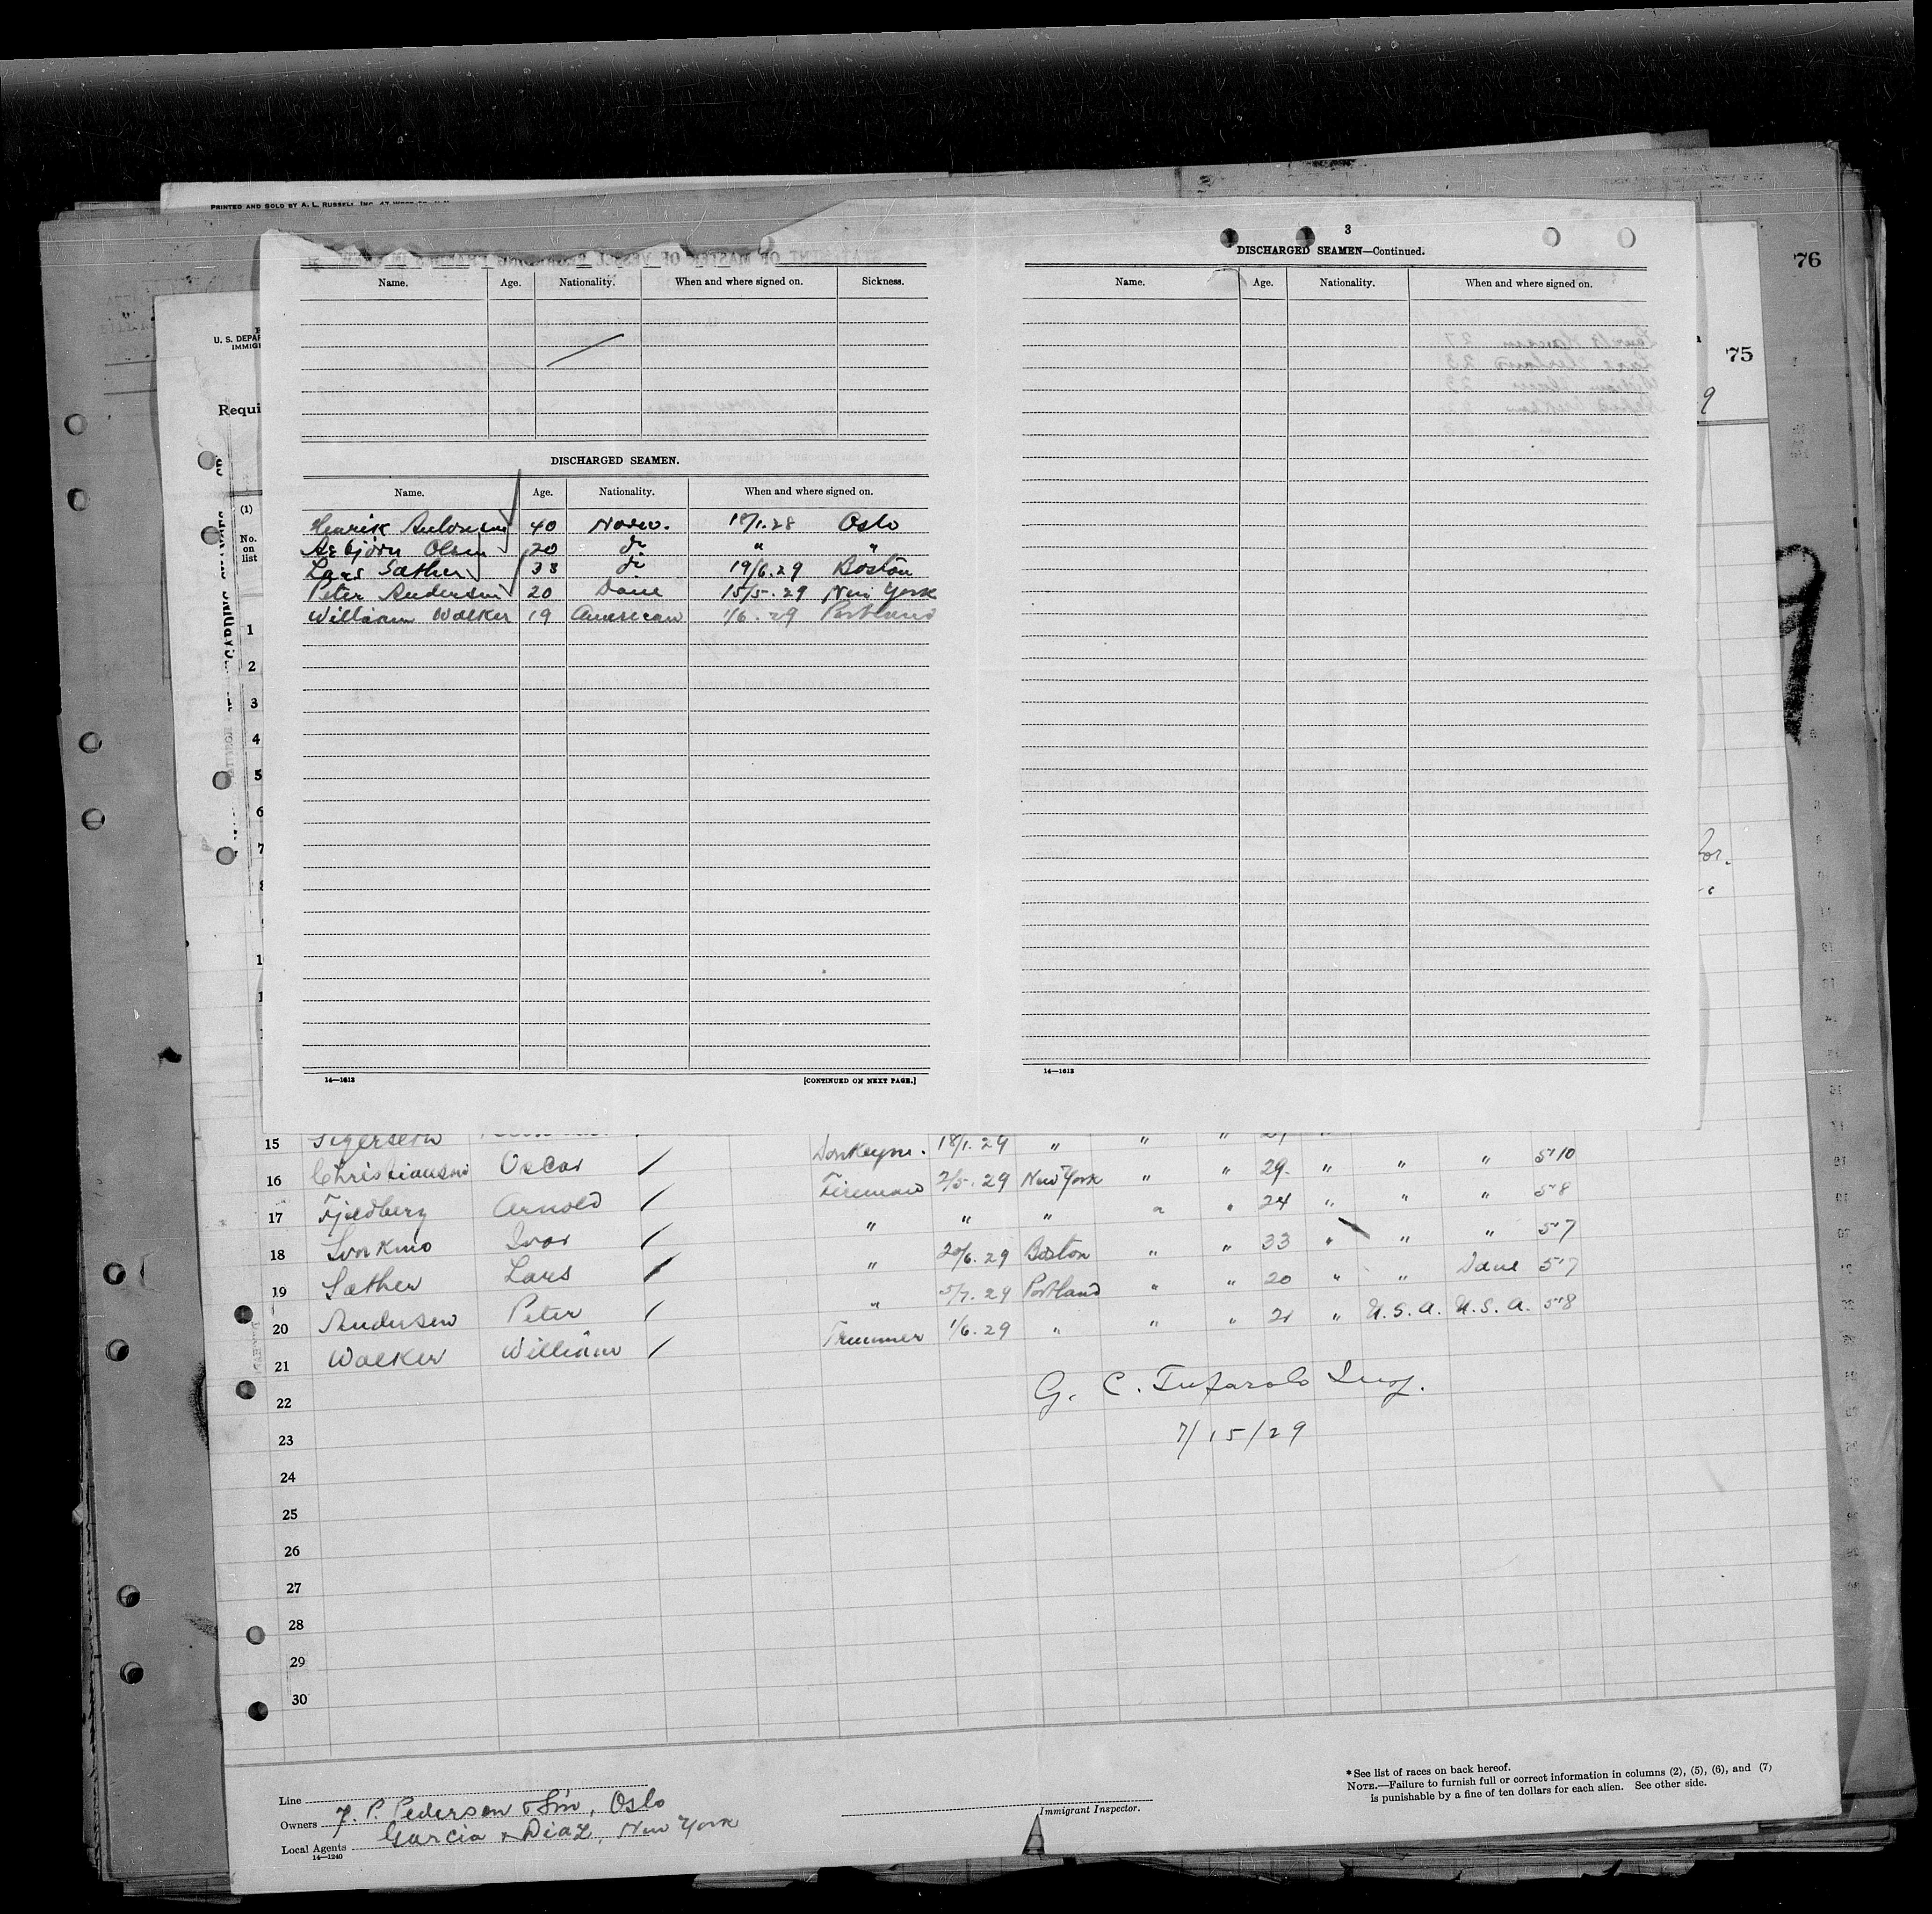 PRINTED AND SOLD BY A. L. RUSSELL, INC.
76
75
U. S. DEPAR
IMMIG
Requi
9
(1)
No.
on
list
1
2
3
4
5
6
7
Name. Age. Nationality. When and where signed on. Sickness.
DISCHARGED SEAMEN.
Name. Age. Nationality. When and where signed on.
Henrik 40 Norw. 18/1.28 Oslo
Asbjørn Olsen 20 do " "
Lars Sæther 33 do 19/6.29 Boston
Peter Andersen 20 Dane 15/5.29 New York
William Walker 19 American 1/6.29 Portland
14—1613 [CONTINUED ON NEXT PAGE.]
3
DISCHARGED SEAMEN—Continued.
Name. Age. Nationality. When and where signed on.
14—1613
15 Sigerseth Donkeym. 18/1.29 " " "
16 Christiansen Oscar / Fireman 2/5.29 New York " " 29 " " " 5'10
17 Fjeldberg Arnold / " " " " " 24 " " " 5'8
18 Ivar / " 20/6.29 Boston " " 33 " " " 5'7
19 Sæther Lars / " 5/7.29 Portland " " 20 " " Dane 5'7
20 Andersen Peter / Trimmer 1/6.29 " " " 21 " U.S.A. U.S.A. 5'8
21 Walker William /
22 G. C.
23 7/15/29
24
25
26
27
28
29
30
Line
Owners F. P. Pedersen & Sön, Oslo
Local Agents Garcia & Diaz, New York
14—1240
Immigrant Inspector.
* See list of races on back hereof.
NOTE.—Failure to furnish full or correct information in columns (2), (5), (6), and (7)
is punishable by a fine of ten dollars for each alien. See other side.